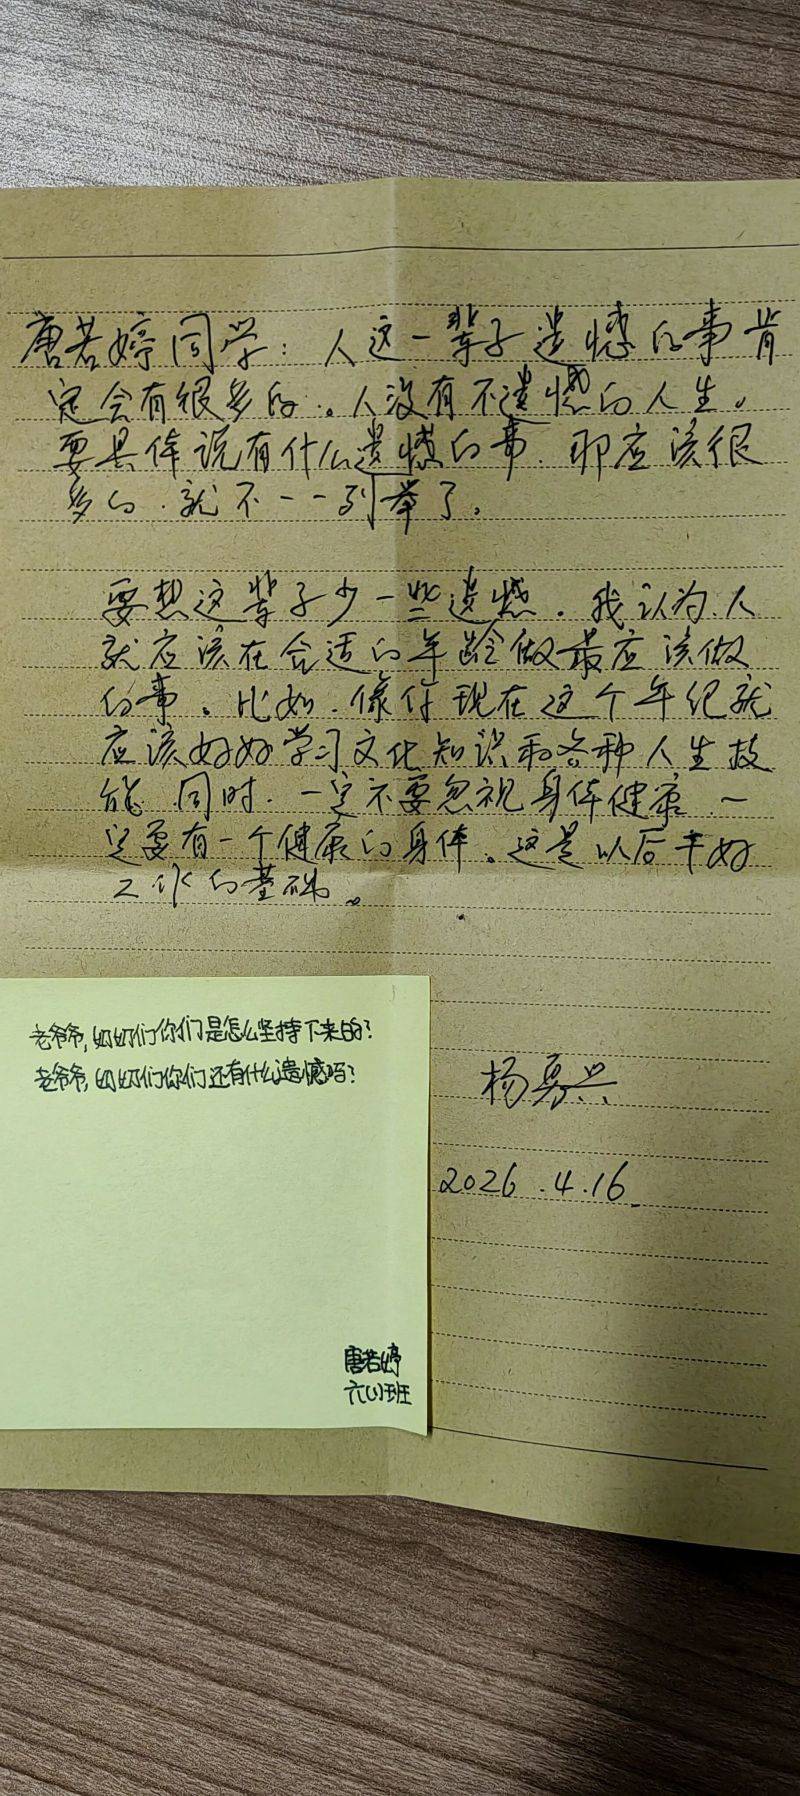 唐若婷同学：人这一辈子遗憾的事肯
定会有很多的。人没有不遗憾的人生。
要具体说有什么遗憾的事，那应该很
多的，就不一一列举了。
要想这辈子少一些遗憾，我认为，人
就应该在合适的年龄做最应该做
的事。比如，像你现在这个年纪就
应该好好学习文化知识和各种人生技
能，同时，一定不要忽视身体健康，一
定要有一个健康的身体。这是以后干好
工作的基础。
杨勇兴
2026.4.16
老爷爷,奶奶们你们是怎么坚持下来的？
老爷爷,奶奶们你们还有什么遗憾吗？
唐若婷
六(1)班